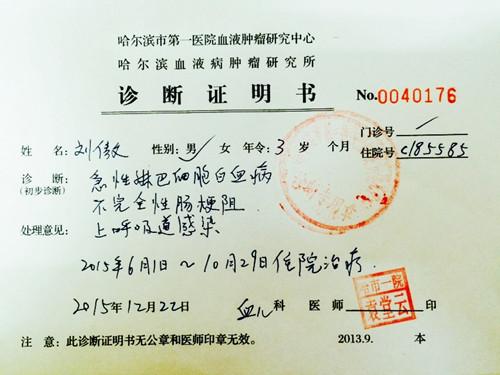 哈尔滨市第一医院血液肿瘤研究中心
哈尔滨血液病肿瘤研究所
诊断证明书
No.0040176
门诊号 /
姓名 刘傲 性别:男/女 年令:3岁 个月 住院号 c185585
诊断: 急性淋巴细胞白血病
(初步诊断) 不完全性肠梗阻
处理意见: 上呼吸道感染
2015年6月1日~10月29日住院治疗.
2015年12月22日 血儿科 医师 印
哈市一院
袁堂云
注意:此诊断证明书无公章和医师印章无效。 2013.9. 本